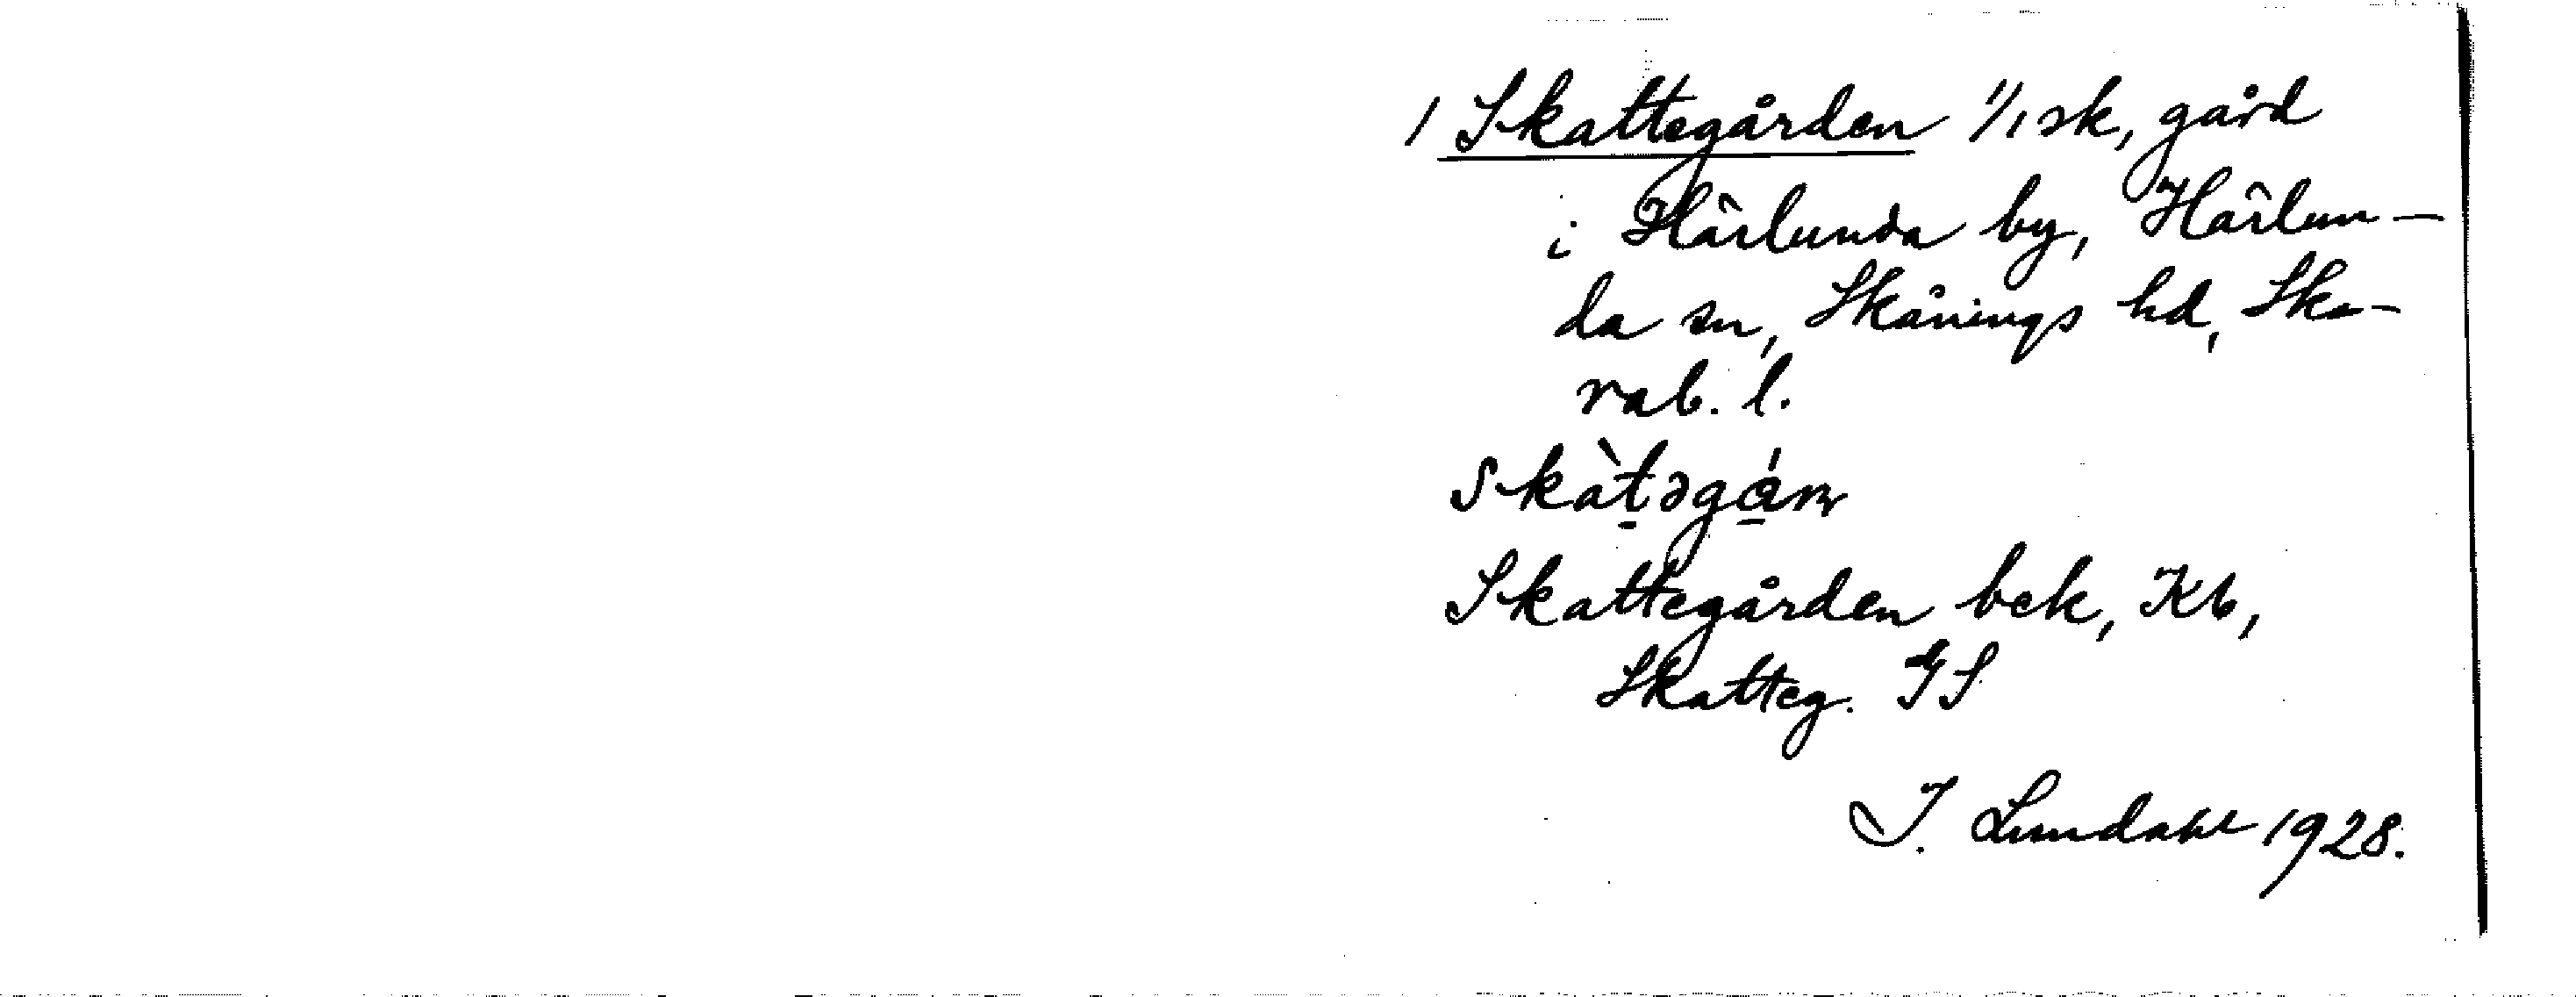 1 Skattegården 1/1 sk, gård
i Härlunda by, Härlun-
da sn, Skånings hd, Ska-
rab. l.
skàt̠əgá̠ɳ
Skattegården bek, Kb,
Skatteg. GS
I. Lundahl 1928.